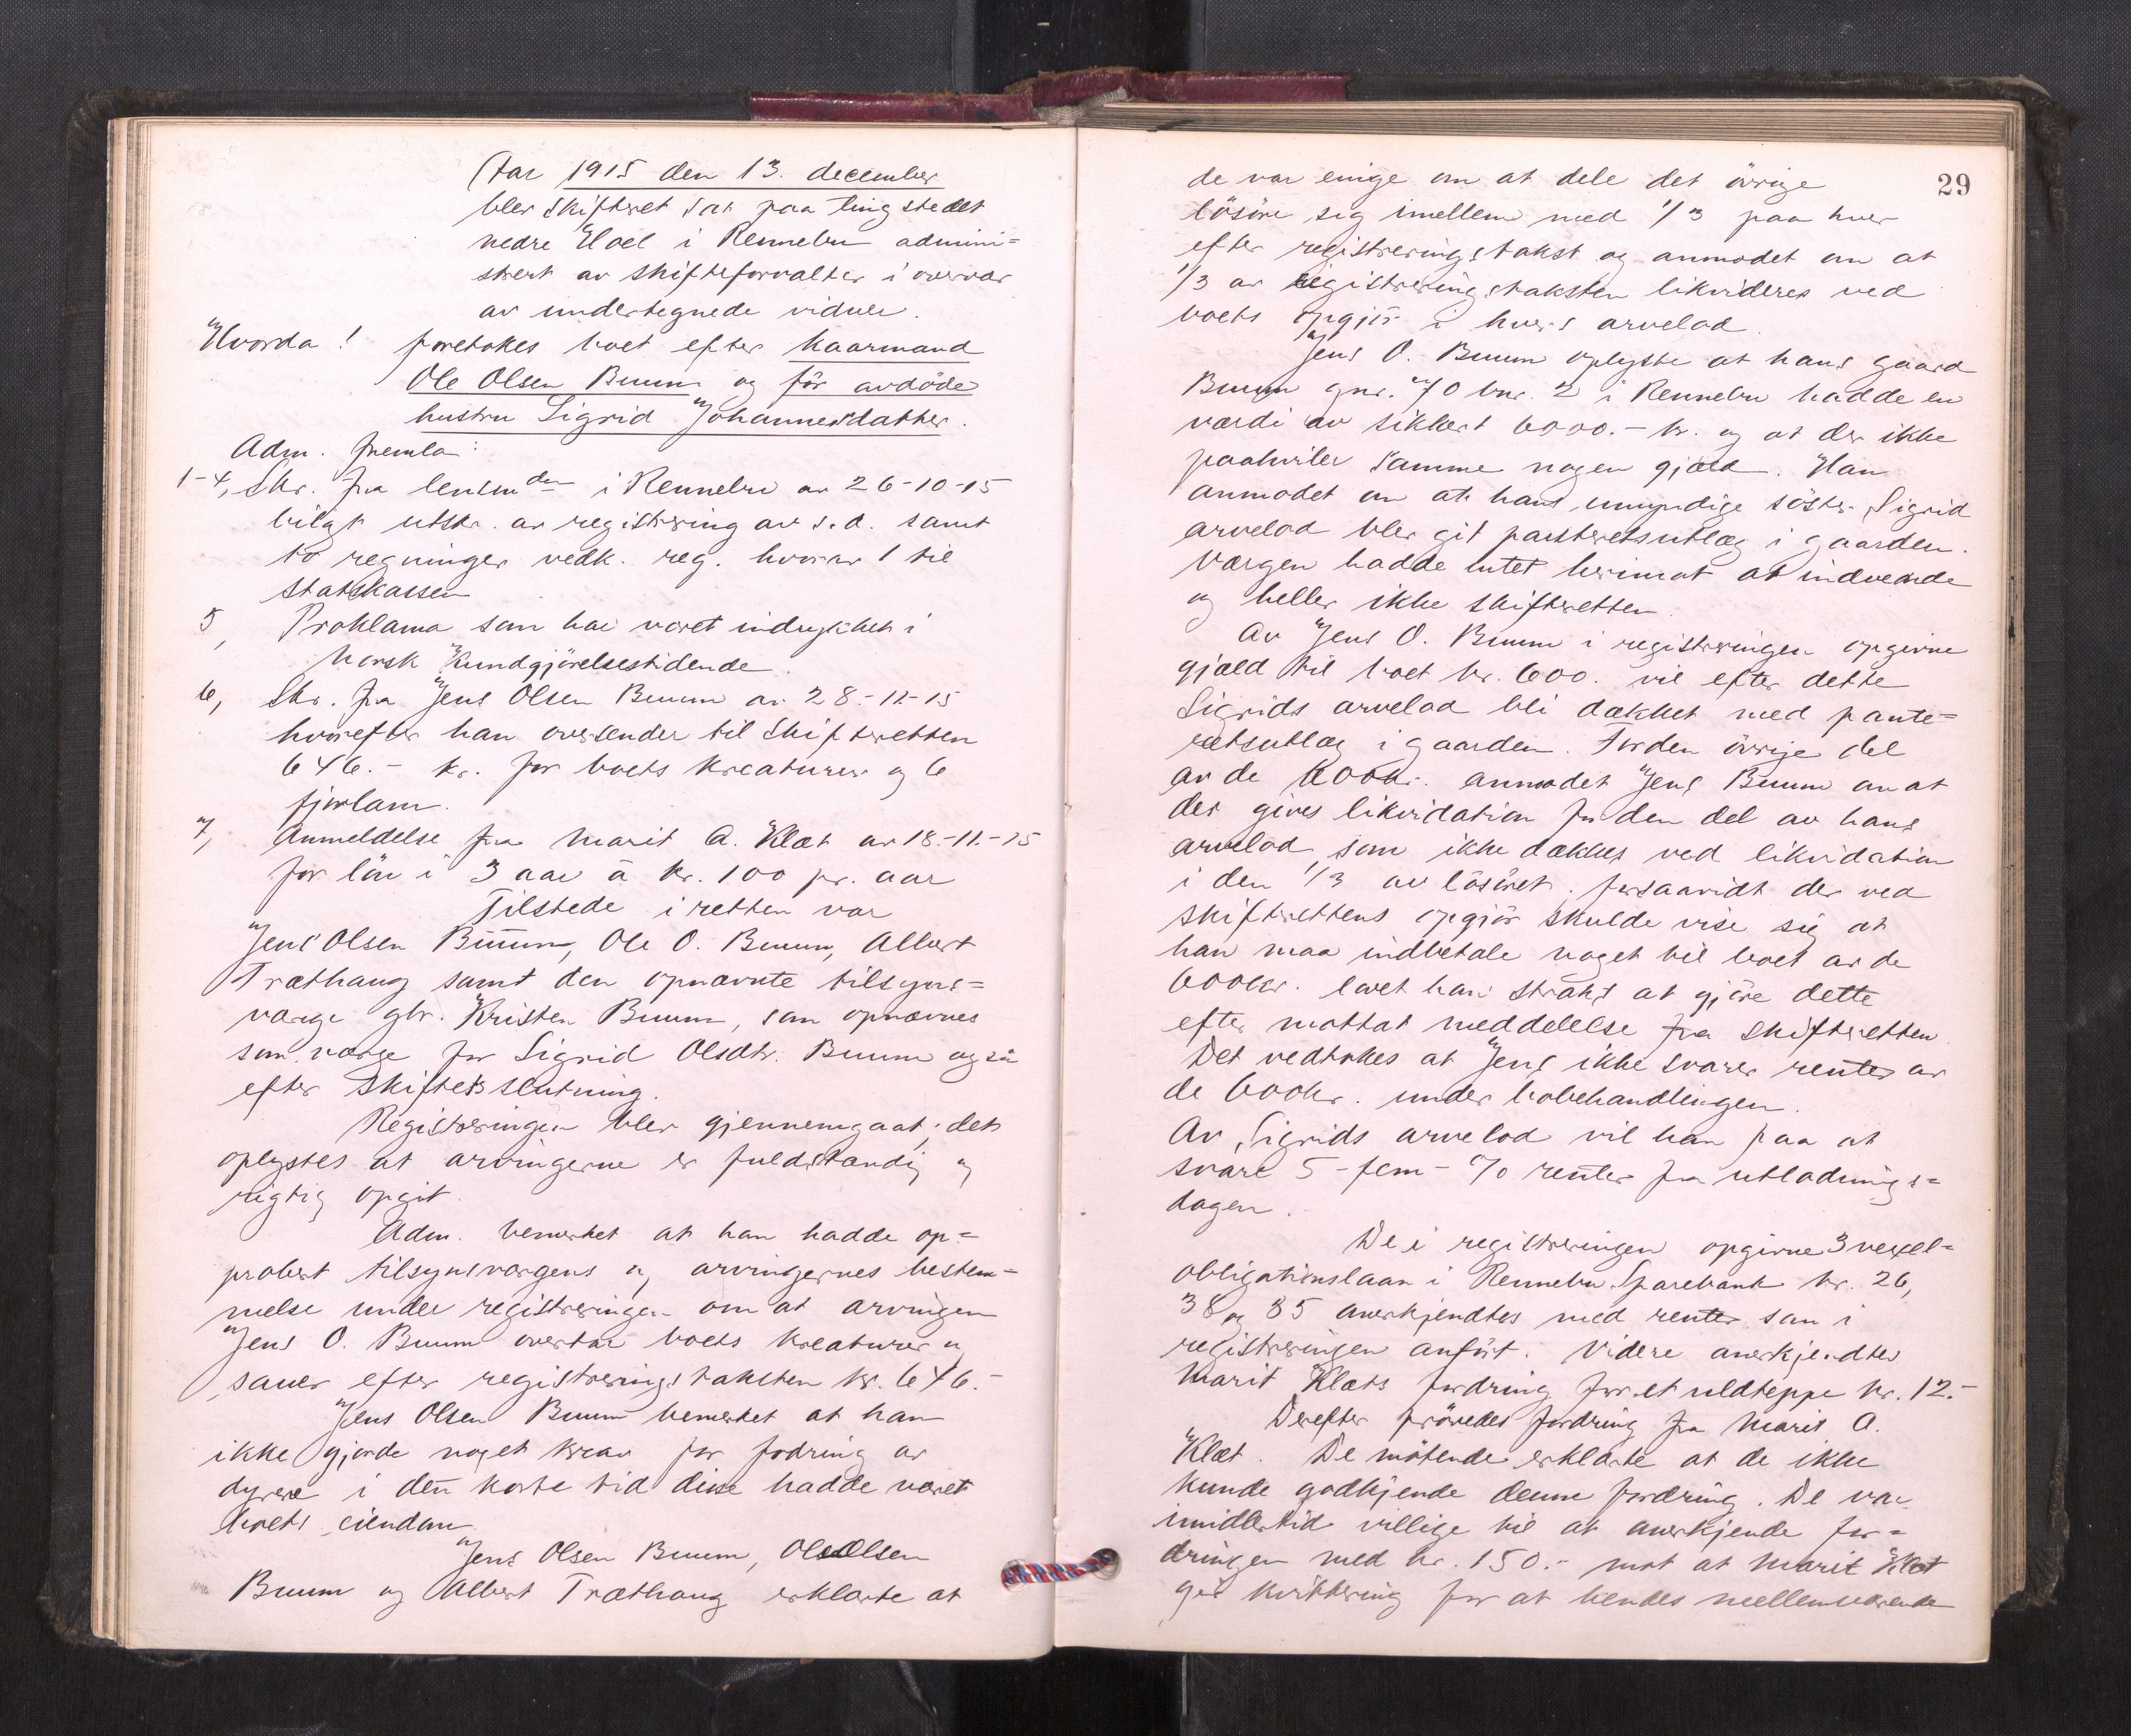 Aar 1915 den 13. december
blev skifteret sat paa tingstedet
nedre Hoel i Rennebu admini=
strert av skifteforvalter i overvær
av undertegnede vidner.
Hvorda! foretokes boet efter kaarmand
Ole Olsen Buum og før avdøde
hustru Sigrid Johannesdatter.
Adm. fremla:
1-4, Skr. fra lensmden i Rennebu av 26-10-15
bilagt utskr. av registrering av s.d. samt
to regninger vedk. reg. hvorav 1 til
statskassen
5, Proklama som har været indrykket i
Norsk Kundgjörelsestidende.
6, Skr. fra Jens Olsen Buum av 28-11-15
hvorefter han oversender til skifteretten
646.- kr. for boets kreaturer og 6
fjorlam.
7, Anmeldelse fra Marit A. Klæt av 18.-11.-15
for lön i 3 aar à kr. 100 pr. aar
Tilstede i retten var
Jens Olsen Buum, Ole O. Buum, Albert
Træthaug samt den opnævnte tilsyns=
værge gbr. Kristen Buum, som opnævnes
som værge for Sigrid Olsdtr. Buum også
efter skiftets slutning.
Registreringen blev gjennemgaat; det
oplystes at arvingerne er fuldstændig og
rigtig opgit.
Adm. bemerket at han hadde ap=
probert tilsynsværgens og arvingernes bestem=
melse under registreringen om at arvingen
Jens O. Buum overtar boets kreaturer og
sauer efter registreringstaksten kr. 646.-
Jens Olsen Buum bemerket at han
ikke gjorde noget krav for fodring av
dyrene i den korte tid disse hadde været
boets eiendom
Jens Olsen Buum, Ole Olsen
Buum og Albert Træthaug erklærte at
29
de var enige om at dele det övrige
lösöre sig imellem med 1/3 paa hver
efter registreringstakst og anmodet om at
1/3 av registreringstaksten likvideres ved
boets opgjör i hvers arvelod.
Jens O. Buum oplyste at hans gaard
Buum gnr. 70 bnr. 2 i Rennebu hadde en
værdi av sikkert 6000.- kr. og at der ikke
paahviler samme nogen gjæld. Han
anmodet om at hans umyndige söster Sigrids
arvelod blev git panteretsutlæg i gaarden.
Værgen hadde intet herimot at indvende
og heller ikke skifteretten.
Av Jens O. Buum i registreringen opgivne
gjæld til boet kr. 600. vil efter dette
Sigrids arvelod bli dækket med pante=
retsutlæg i gaarden. For den övrige del
av de 600 kr. anmodet Jens Buum om at
der gives likvidation for den del av hans
arvelod som ikke dækkes ved likvidation
i den 1/3 av lösöret. Forsaavidt der ved
skifterettens opgjör skulde vise sig at
han maa indbetale noget til boet av de
600 kr. lovet han straks at gjöre dette
efter mottat meddelelse fra skifteretten.
Det vedtokes at Jens ikke svarer renter av
de 600 kr. under bobehandlingen.
Av Sigrids arvelod vil han paa at
svare 5 - fem - % renter fra utlodnings=
dagen.
De i registreringen opgivne 3 vexel=
obligationslaan i Rennebu Sparebank kr. 26,
38 og 85 anerkjendtes med renter som i
registreringen anfört. Videre anerkjendtes
Marit Klæts fordring for et uldteppe kr. 12.-
Derefter prövedes fordring fra Marit A.
Klæt. De mötende erklærte at de ikke
kunde godkjende denne fordring. De var
imidlertid villige til at anerkjende for=
dringen med kr. 150.- mot at Marit Klæt
gir kvittering for at hendes mellemværende